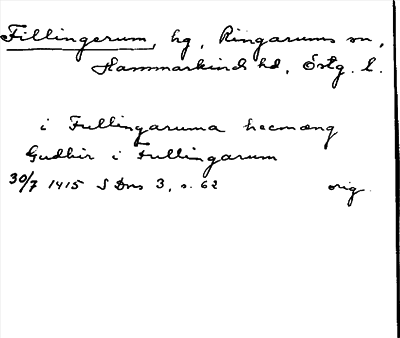 Fillingerum, hg, Ringarums sn,
Hammarkinds hd, Östg. l.
i Fullingaruma hecmæng
Gudhir i Fullingarum
30/7 1415 SDns 3, s. 62 orig.